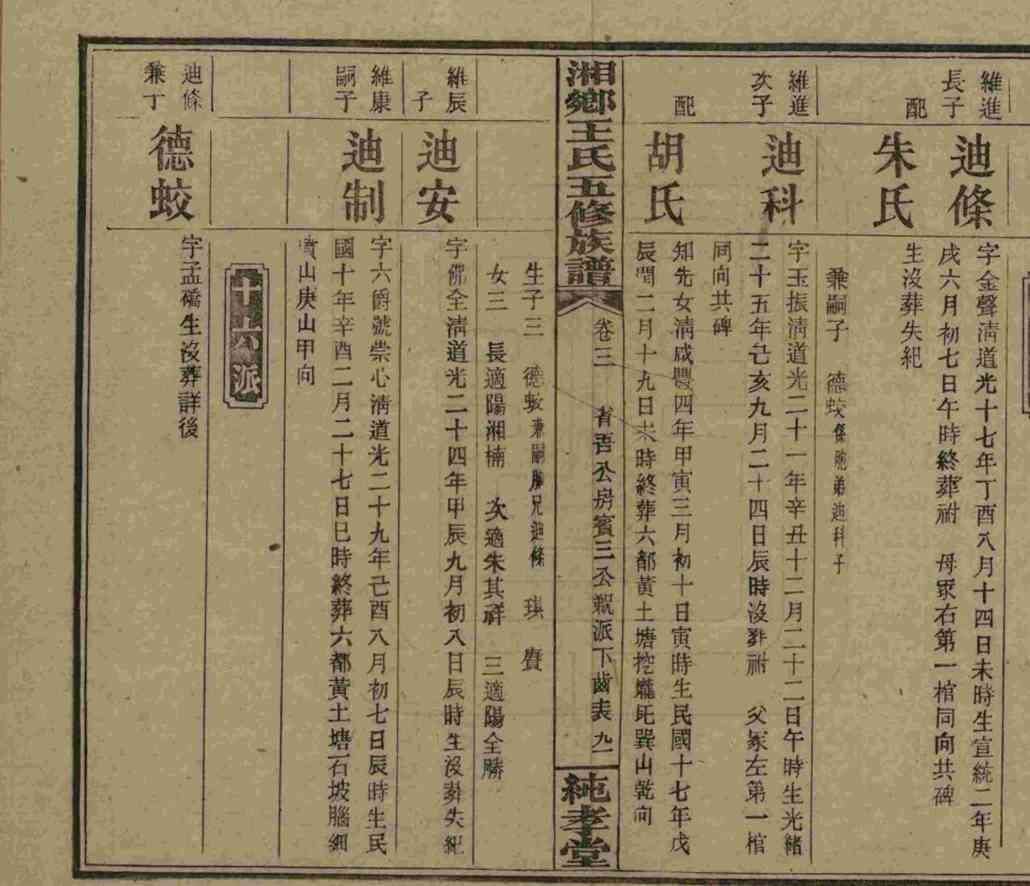 維進
長子
迪條
字金聲淸道光十七年丁酉八月十四日未時生宣統二年庚
戌六月初七日午時終葬祔 母冢右第一棺同向共碑
配
朱氏
生沒葬失紀
兼嗣子 德蛟條胞弟迪科子
維進
次子
迪科
字玉振淸道光二十一年辛丑十二月二十二日午時生光緒
二十五年己亥九月二十四日辰時沒葬祔 父冢左第一棺
同向共碑
配
胡氏
知先女淸咸豐四年甲寅三月初十日寅時生民國十七年戊
辰閏二月十九日未時終葬六都黃土塘挖壠坵巽山乾向
湘鄉王氏五修族譜
卷三 省吾公房賓三公派下齒表 九一
純孝堂
生子三 德蛟兼嗣胞兄迪條 琪 賡
女三 長適陽湘楠 次適朱其祥 三適陽全勝
維辰
子
迪安
字佛全淸道光二十四年甲辰九月初八日辰時生沒葬失紀
維康
嗣子
迪制
字六爵號崇心淸道光二十九年己酉八月初七日辰時生民
國十年辛酉二月二十七日巳時終葬六都黃土塘石坡腦細
山庚山甲向
十六派
迪條
兼丁
德蛟
字孟礄生沒葬詳後